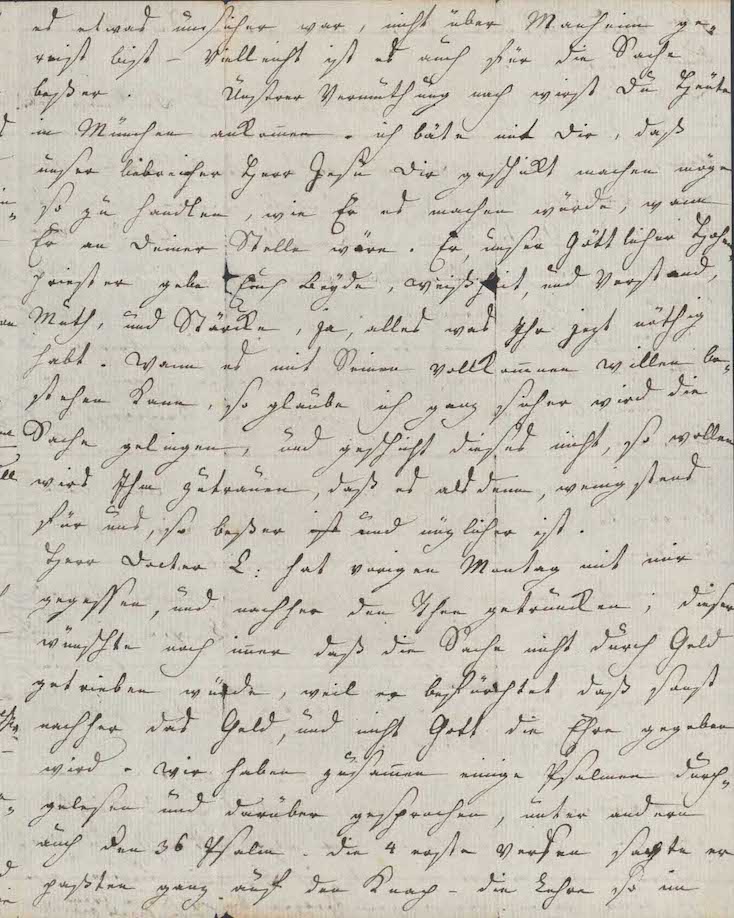 es etwas unsicher war, nicht über Manheim ge-
reist bist – Vielleicht ist es auch für die Sache
beßer. Unserer Vermuthung nach wirst Du Heute
in München ankommen. ich bäte mit Dir, daß
unser liebreicher Herr Jesu Dir geschikt machen möge
so zu handlen, wie Er es machen würde, wann
Er an Deiner Stelle wäre. Er, unser Göttlicher Hohe-
priester gebe Euch Beyde, Weißheit, und Verstand,
Muth, und Stärcke, ja, alles was Ihr jezt nöthig
habt. Wann es mit Seinen vollkommnen willen be-
stehen kann, so glaube ich ganz sicher wird die
Sache gelingen, und geschieht dieses nicht, so wollen
wir's Ihm zutrauen, daß es alsdenn, wenigstens
für uns, so beßer ist und nüzlicher ist.
Herr Docter L: hat vorigen Montag mit mir
gegessen, und nachher den Thee getruncken; dieser
wünschte noch immer daß die Sache nicht durch Geld
getrieben würde, weil er befürchtet daß sonst
nachher das Geld, und nicht Gott die Ehre gegeben
wird. Wir haben zusammen einige Psalmen durch-
gelesen und darüber gesprochen, unter andern
auch den 36 Psalm. die 4 erste Versen sagte er
paßten ganz auf den Knap – die Lehre so im